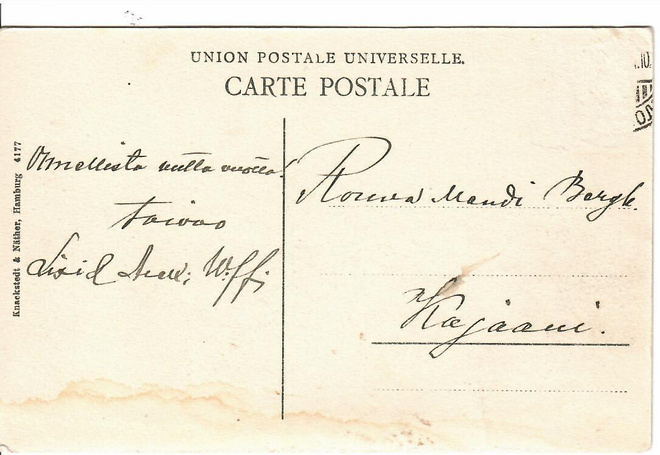 UNION POSTALE UNIVERSELLE.
CARTE POSTALE
Knackstedt & Näther, Hamburg 4177
Onnellista uutta vuotta!
toivoo
Rouva Mandi Bergh.
Kajaani.